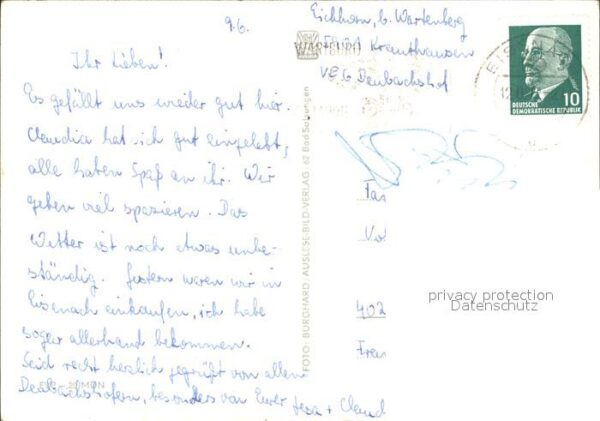 9.6.
Ihr Lieben!
Es gefällt uns wieder gut hier.
Claudia hat sich gut eingelebt,
alle haben Spaß an ihr. Wir
gehen viel spazieren. Das
Wetter ist noch etwas unbe-
ständig. Gestern waren wir in
Eisenach einkaufen, ich habe
sogar allerhand bekommen.
Seid recht herzlich gegrüßt von allen
Deubachshofern, besonders von Eurer + Claud
FOTO: BURGHARD. AUSLESE-BILD-VERLAG. 62 Bad Salzungen
Eichhorn, b. Wartenberg
Krauthausen
VEG Deubachshof
WARTBURG
DEUTSCHE
DEMOKRATISCHE REPUBLIK
10
Fam
Vol
402
Frau
privacy protection
Datenschutz